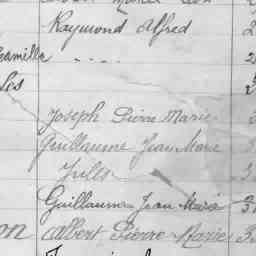 Raymond Alfred 2
Camille . . . .
les
Joseph Pierre Marie 3
Guillaume Jean Marie 3
Jules 3
Guillaume Jean Marie 3
on Albert Pierre Marie 3